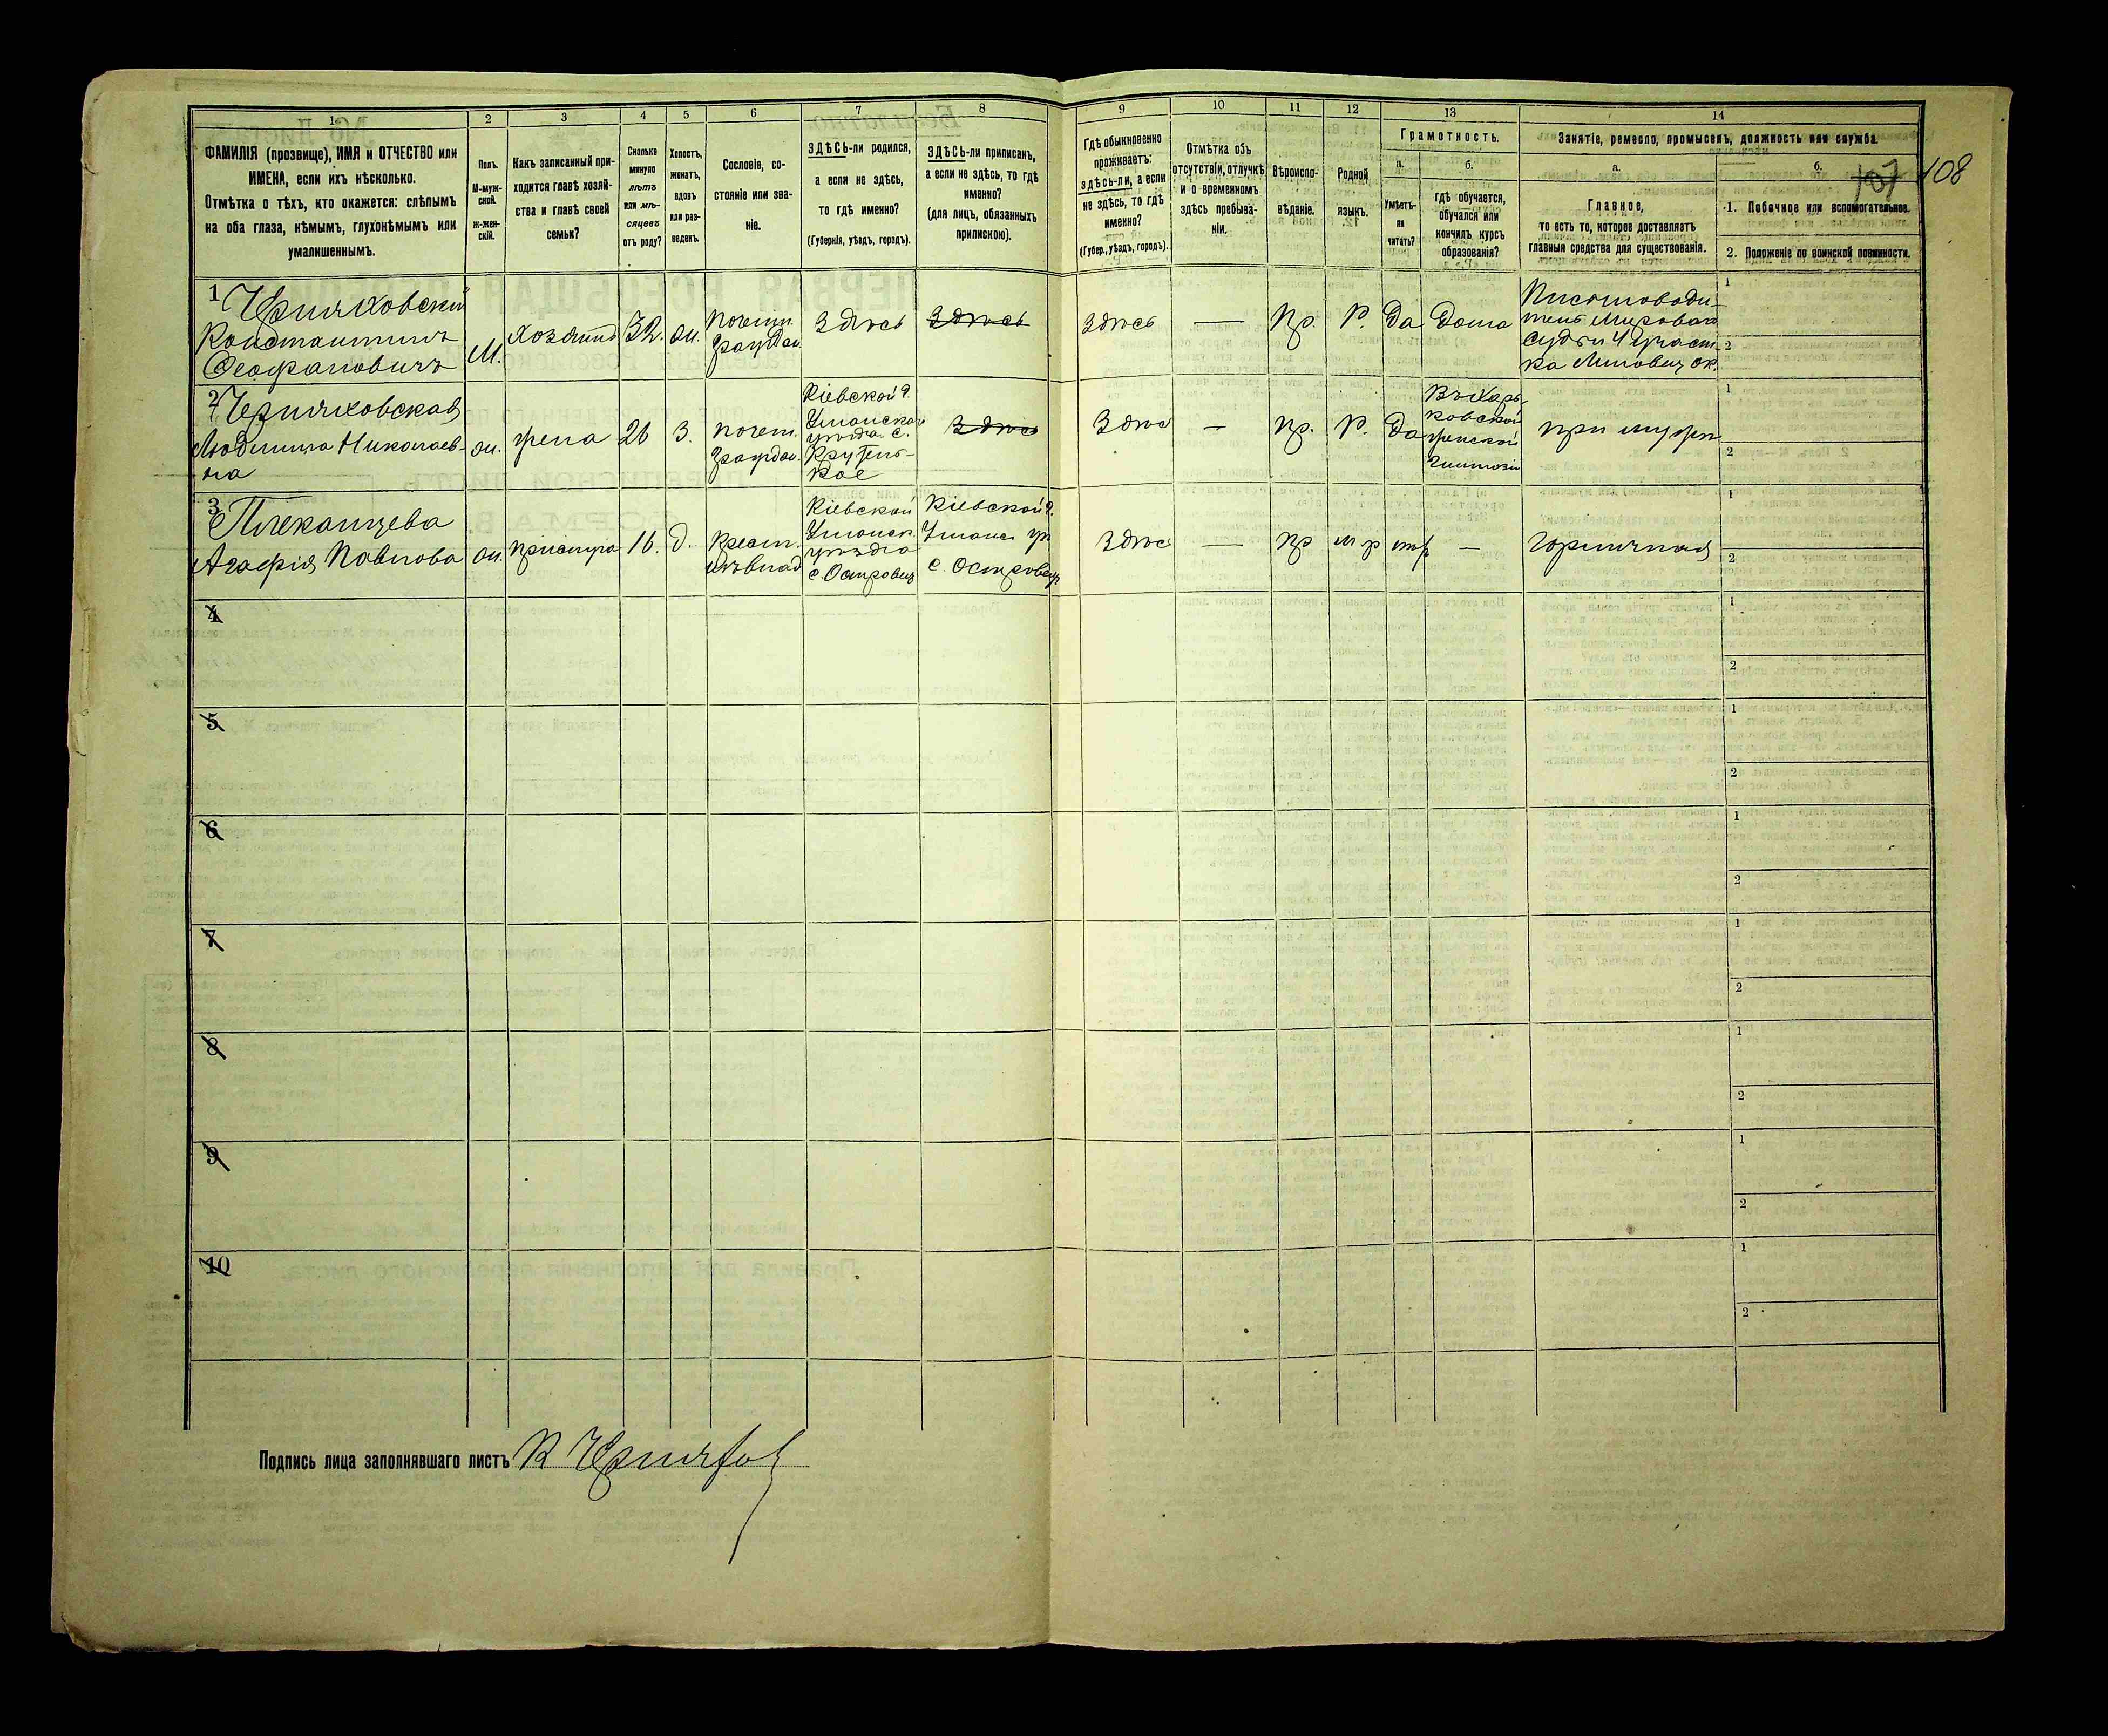 1
2
3
4
5
6
7
8
9
10
11
12
13
14
ФАМИЛІЯ (прозвище), ИМЯ и ОТЧЕСТВО или
ИМЕНА, если ихъ нѣсколько.
Отмѣтка о тѣхъ, кто окажется: слѣпымъ
на оба глаза, нѣмымъ, глухонѣмымъ или
умалишеннымъ.
Полъ.
М-муж-
ской.
Ж-жен-
скій.
Какъ записанный при-
ходится главѣ хозяй-
ства и главѣ своей
семьи?
Сколько
минуло
лѣтъ
или мѣ-
сяцевъ
отъ роду?
Холостъ,
женатъ,
вдовъ
или раз-
веденъ.
Сословіе, со-
стояніе или зва-
ніе.
ЗДѢСЬ-ли родился,
а если не здѣсь,
то гдѣ именно?
(Губернія, уѣздъ, городъ).
ЗДѢСЬ-ли приписанъ,
а если не здѣсь, то гдѣ
именно?
(для лицъ, обязанныхъ
припискою).
Гдѣ обыкновенно
проживаетъ:
здѣсь-ли, а если
не здѣсь, то гдѣ
именно?
(Губер., уѣздъ, городъ).
Отмѣтка объ
отсутствіи, отлучкѣ
и о временномъ
здѣсь пребыва-
ніи.
Вѣроиспо-
вѣданіе.
Родной
языкъ.
Грамотность.
а.
Умѣетъ-
ли
читать?
б.
гдѣ обучается,
обучался или
кончилъ курсъ
образованія?
Занятіе, ремесло, промыселъ, должность или служба.
а.
Главное,
то есть то, которое доставляетъ
главныя средства для существованія.
б.
107 108
1. Побочное или вспомогательное.
2. Положеніе по воинской повинности.
1 Черняховскій
Константинъ
Феофановичъ
М.
хозяинъ
32.
ж.
почетн.
гражд.
здѣсь
здѣсь
здѣсь
—
пр.
Р.
Да
Дома
Письмоводи-
тель Мирового
судьи 4 участ-
ка Липовец ок.
1
2
2 Черняховская
Людмила Николаев-
на
ж.
жена
26
З.
почет.
гражд.
Кіевской г.
Уманскаго
уѣзда с.
здѣсь
здѣсь
—
пр.
Р.
Да
Въ Харь-
ковской
женской
гимназіи
при мужѣ
1
2
3
Агафія Павлова
ж.
прислуга
16.
д.
Крест.
Кіевской
Уманск.
уѣзда
с. Островец
Кіевской г.
Уманс. у.
с. Островец
здѣсь
—
пр
м р
—
горничная
1
2
4
1
2
5
1
2
6
1
2
7
1
2
8
1
2
9
1
2
10
1
2
Подпись лица заполнявшаго листъ К Черняхов